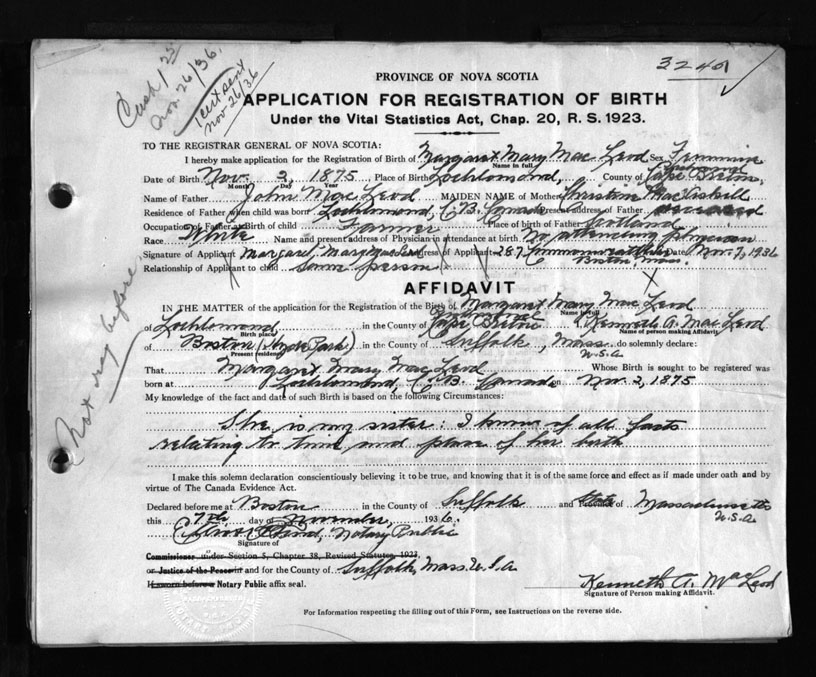 Cash 1 25
Nov. 26/36.
1 cert sent
Nov 26/36
3240
PROVINCE OF NOVA SCOTIA
APPLICATION FOR REGISTRATION OF BIRTH
Under the Vital Statistics Act, Chap. 20, R. S. 1923.
TO THE REGISTRAR GENERAL OF NOVA SCOTIA:
I hereby make application for the Registration of Birth of Margaret Mary Mac Leod Sex Feminine
Name in full
Date of Birth Nov. 2, 1875 Place of Birth Lochlomond, County of Cape Breton
Month Day Year
Name of Father John MacLeod MAIDEN NAME of Mother Christine MacAskill
Residence of Father when child was born Lochlomond, C.B. Canada Present address of Father deceased
Occupation of Father at Birth of child Farmer Place of birth of Father Scotland
Race White Name and present address of Physician in attendance at birth No attending physician
Signature of Applicant Margaret Mary MacLeod Address of Applicant 287 Commonwealth Ave Date Nov. 7, 1936
Relationship of Applicant to child Same person Boston, Mass.
AFFIDAVIT
IN THE MATTER of the application for the Registration of the Birth of Margaret Mary Mac Leod
Name in full
of Lochlomond, in the County of Cape Breton I, Kenneth A. MacLeod
Birth place Name of person making Affidavit.
of Boston (Hyde Park) in the County of Suffolk, Mass. do solemnly declare:
Present residence U.S.A.
That Margaret Mary MacLeod Whose Birth is sought to be registered was
born at Lochlomond, C.B. Canada on Nov. 2, 1875
My knowledge of the fact and date of such Birth is based on the following Circumstances:
She is my sister: I know of all facts
relating to time and place of her birth
Not reg before
I make this solemn declaration conscientiously believing it to be true, and knowing that it is of the same force and effect as if made under oath and by
virtue of The Canada Evidence Act.
Declared before me at Boston in the County of Suffolk and State of Massachusetts
this 7th day of November, 1936. U.S.A.
Notary Public
Signature of
Commissioner under Section 5, Chapter 38, Revised Statutes, 1923
or Justice of the Peace in and for the County of Suffolk, Mass. U.S.A.
If sworn before Notary Public affix seal.
Kenneth A. MacLeod
Signature of Person making Affidavit.
For Information respecting the filling out of this Form, see Instructions on the reverse side.